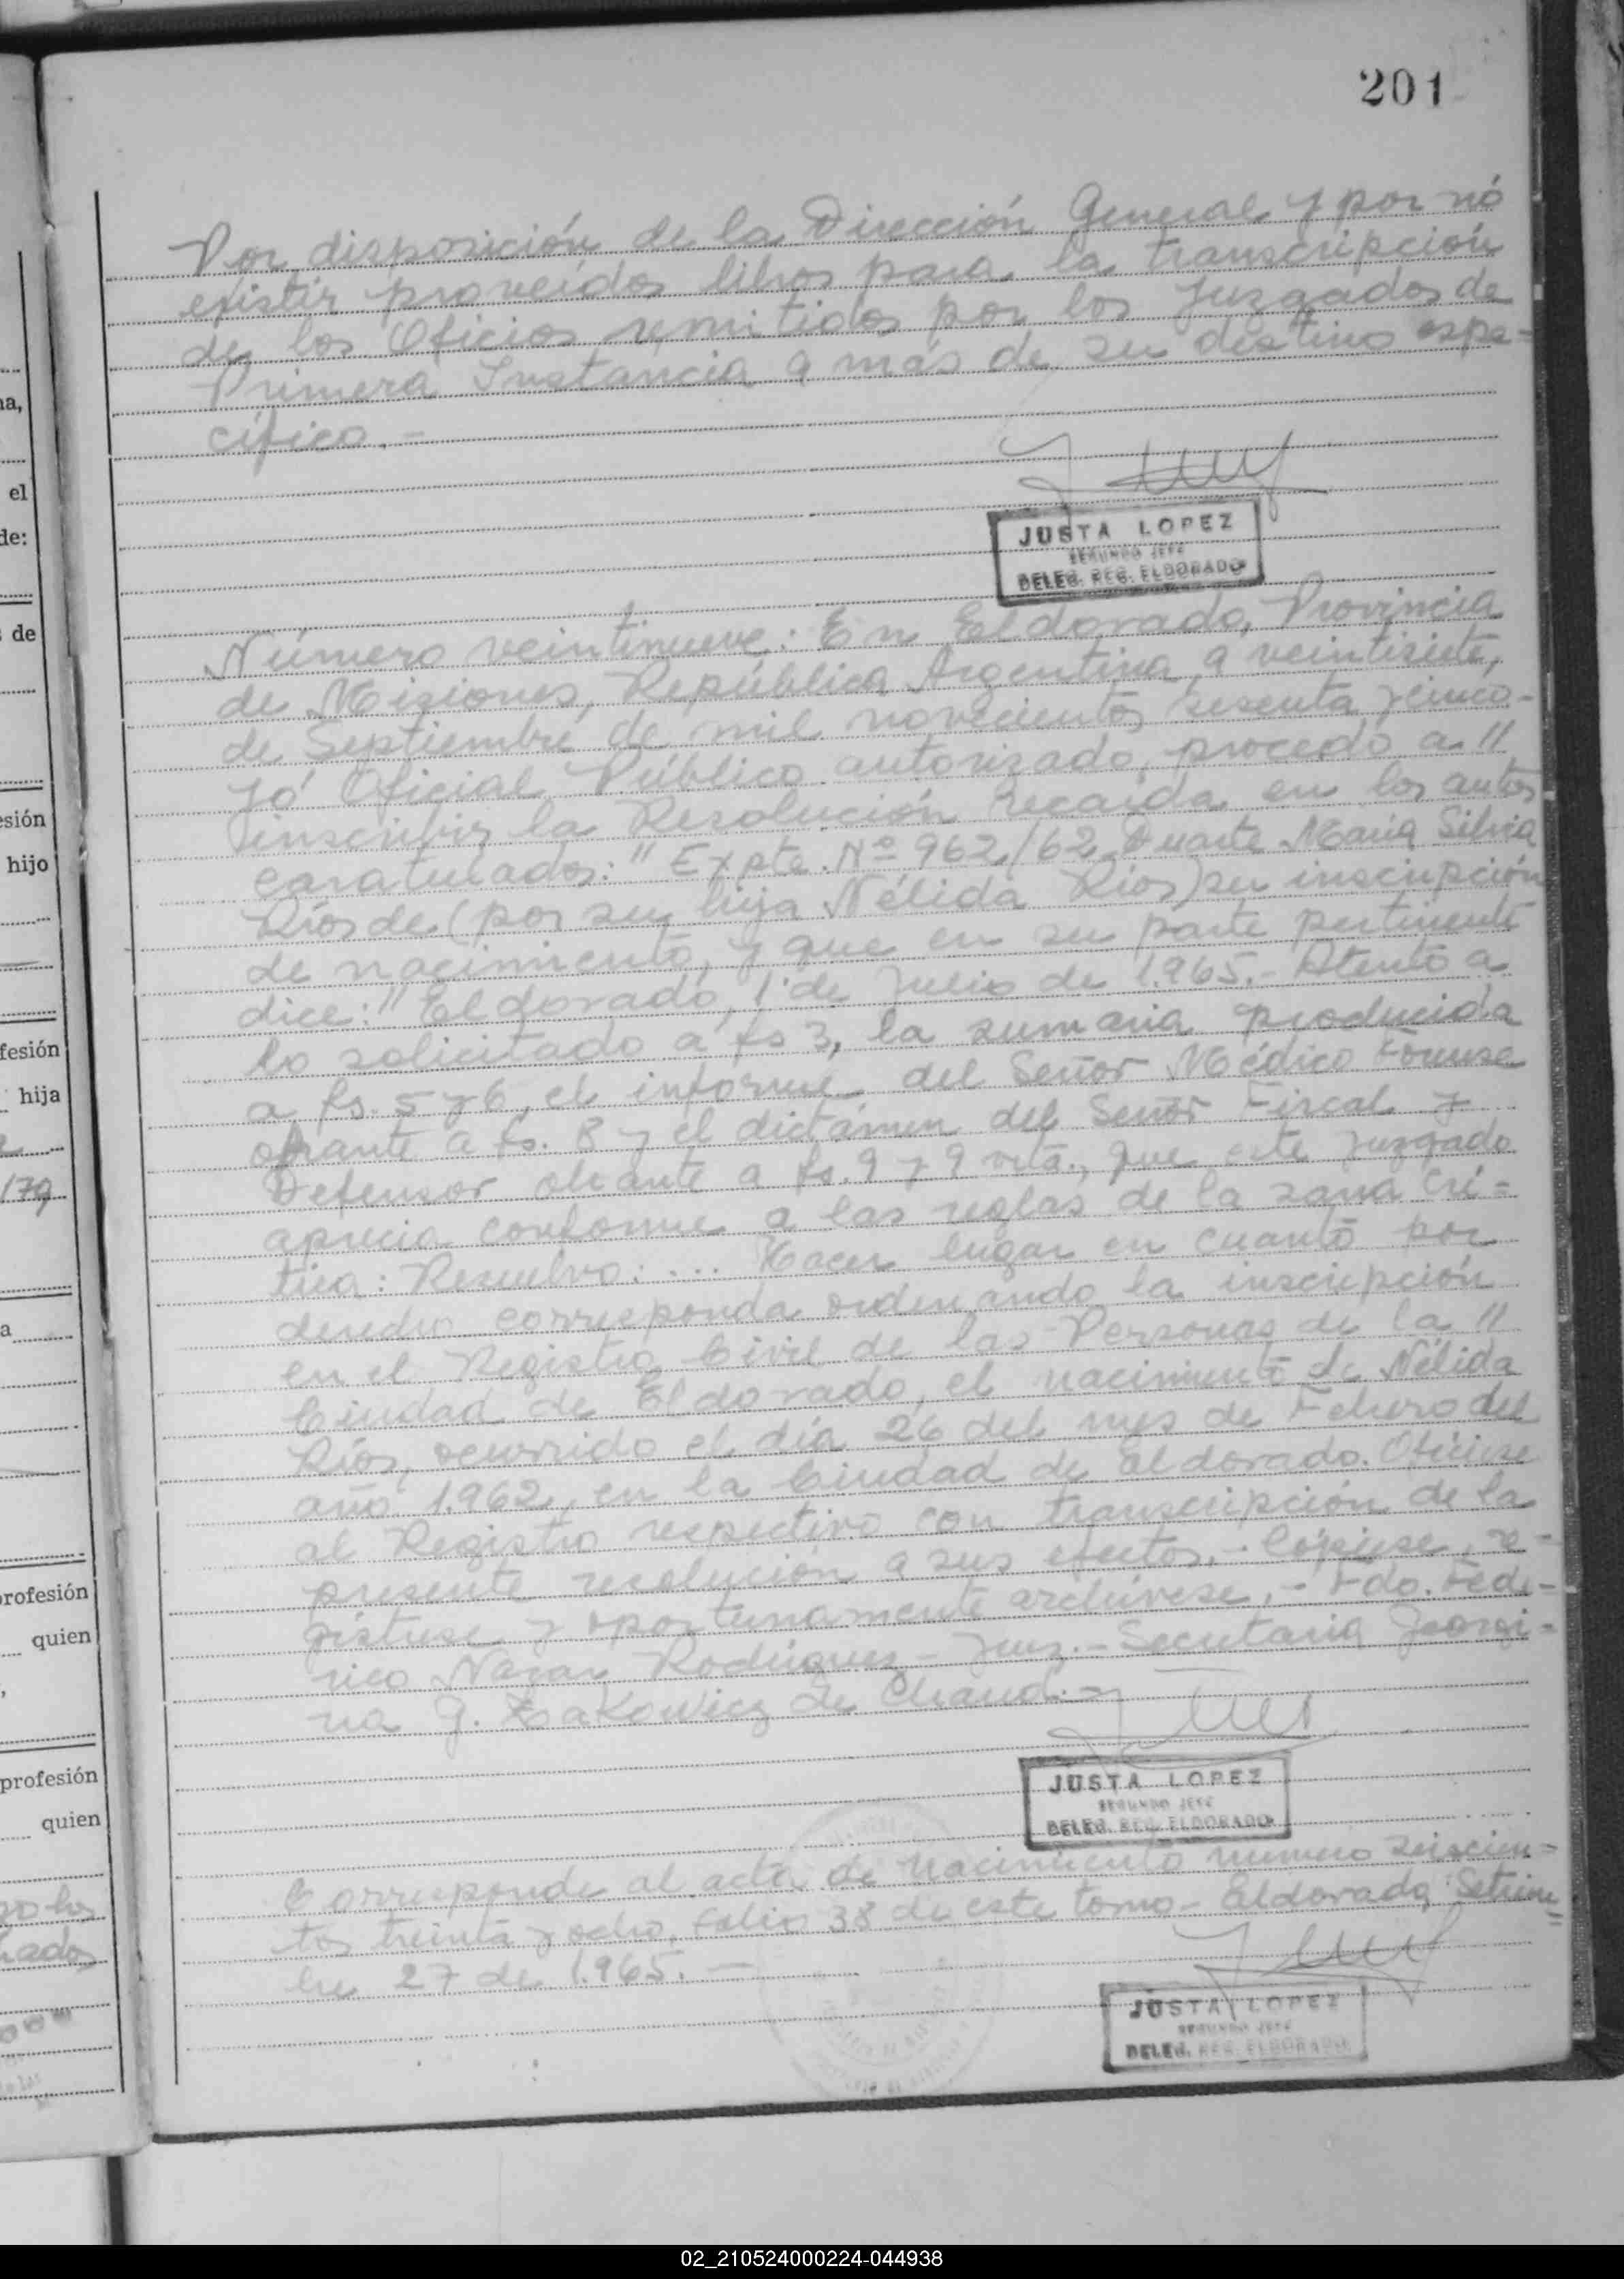 201
Por disposición de la Dirección General y por nó
existir proveídos libros para la transcripción
de los Oficios remitidos por los Juzgados de
Primera Instancia a más de su destino espe=
cífico.-
JUSTA LOPEZ
SEGUNDO JEFE
DELEG. REG. ELDORADO
Número veintinueve: En Eldorado, Provincia
de Misiones, República Argentina, a veintisiete,
de Septiembre de mil novecientos sesenta y cinco-
yó Oficial Público autorizado, procedo a //
inscribir la Resolución recaída en los autos
caratulados: "Expte. Nº 962/62 Duarte María Silvia
Ríos de (por su hija Nélida Ríos) su inscripción
de nacimiento, y que en su parte pertinente
dice: "Eldorado, 1º de Julio de 1.965.- Atento a
lo solicitado a fs 3, la sumaria producida
a fs. 5 y 6, el informe del Señor Médico Forense
obrante a fs. 8 y el dictámen del Señor Fiscal y
Defensor obrante a fs. 9 y 9 vta., que este juzgado
aprecia conforme a las reglas de la sana crí=
tica: Resuelvo: .... Hacer lugar en cuanto por
derecho corresponda ordenando la inscripción
en el Registro Civil de las Personas de la //
Ciudad de Eldorado, el nacimiento de Nélida
Ríos, ocurrido el día 26 del mes de Febrero del
año 1.962, en la Ciudad de Eldorado. Ofíciese
al Registro respectivo con transcripción de la
presente resolución a sus efectos.- Cópiese, re=
gístrese y oportunamente archívese.- Fdo. Fede=
rico Nazar Rodríguez - Juez.- Secretaria Georgi=
na G. Zakowicz de Chaud.-
JUSTA LOPEZ
SEGUNDO JEFE
DELEG. REG. ELDORADO
Corresponde al acta de nacimiento número seiscien=
tos treinta y ocho, Folio 38 de este tomo - Eldorado, Setiem=
bre 27 de 1.965.-
JUSTA LOPEZ
SEGUNDO JEFE
DELEG. REG. ELDORADO
na,
el
de:
de
esión
hijo
fesión
hija
179
a
rofesión
quien
profesión
quien
02_210524000224-044938